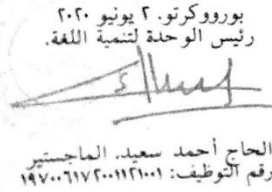 بورووكرتو. ٢ يونيو ٢٠٢٠
رئيس الوحدة لتنمية اللغة.
الحاج أحمد سعيد. الماجستير
رقم التوظيف: ١٩٧٠٠٦١٧٢٠٠١١٢١٠٠١